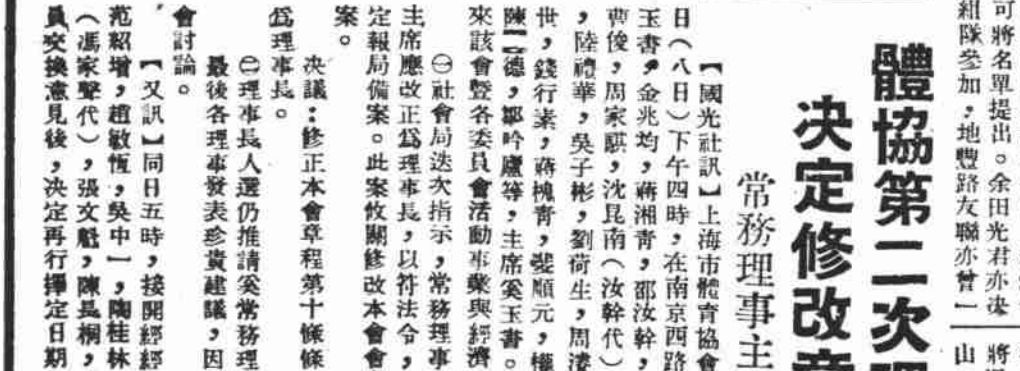 可將名單提出。余田光君亦决
組隊參加，地豐路友聯亦曾一
將
山
體協第二次理
决定修改章
常務理事主
【國光社訊】上海市體育協會
日（八日）下午四時，在南京西路
玉書，金兆均，蔣湘青，邵汝幹，
曹俊，周家騏，沈昆南（汝幹代）
，陸禮華，吳子彬，劉荷生，周
世，錢行素，蔣槐青，裴順元，
陳一德，鄒吟廬等，主席奚玉書。
來該會暨各委員會活動事業與經濟
㊀社會局迭次指示，常務理事
主席應改正爲理事長，以符法令，
定報局備案。此案攸關修改本會會
案。
决議：修正本會章程第十條條
爲理事長。
㊁理事長人選仍推請奚常務理
最後各理事發表珍貴建議，因
會討論。
【又訊】同日五時，接開經經
，
范紹增，趙敏恆，吳中一，陶桂林
（馮家聲代），張文魁，陳長桐，
員交換意見後，决定再行擇定日期